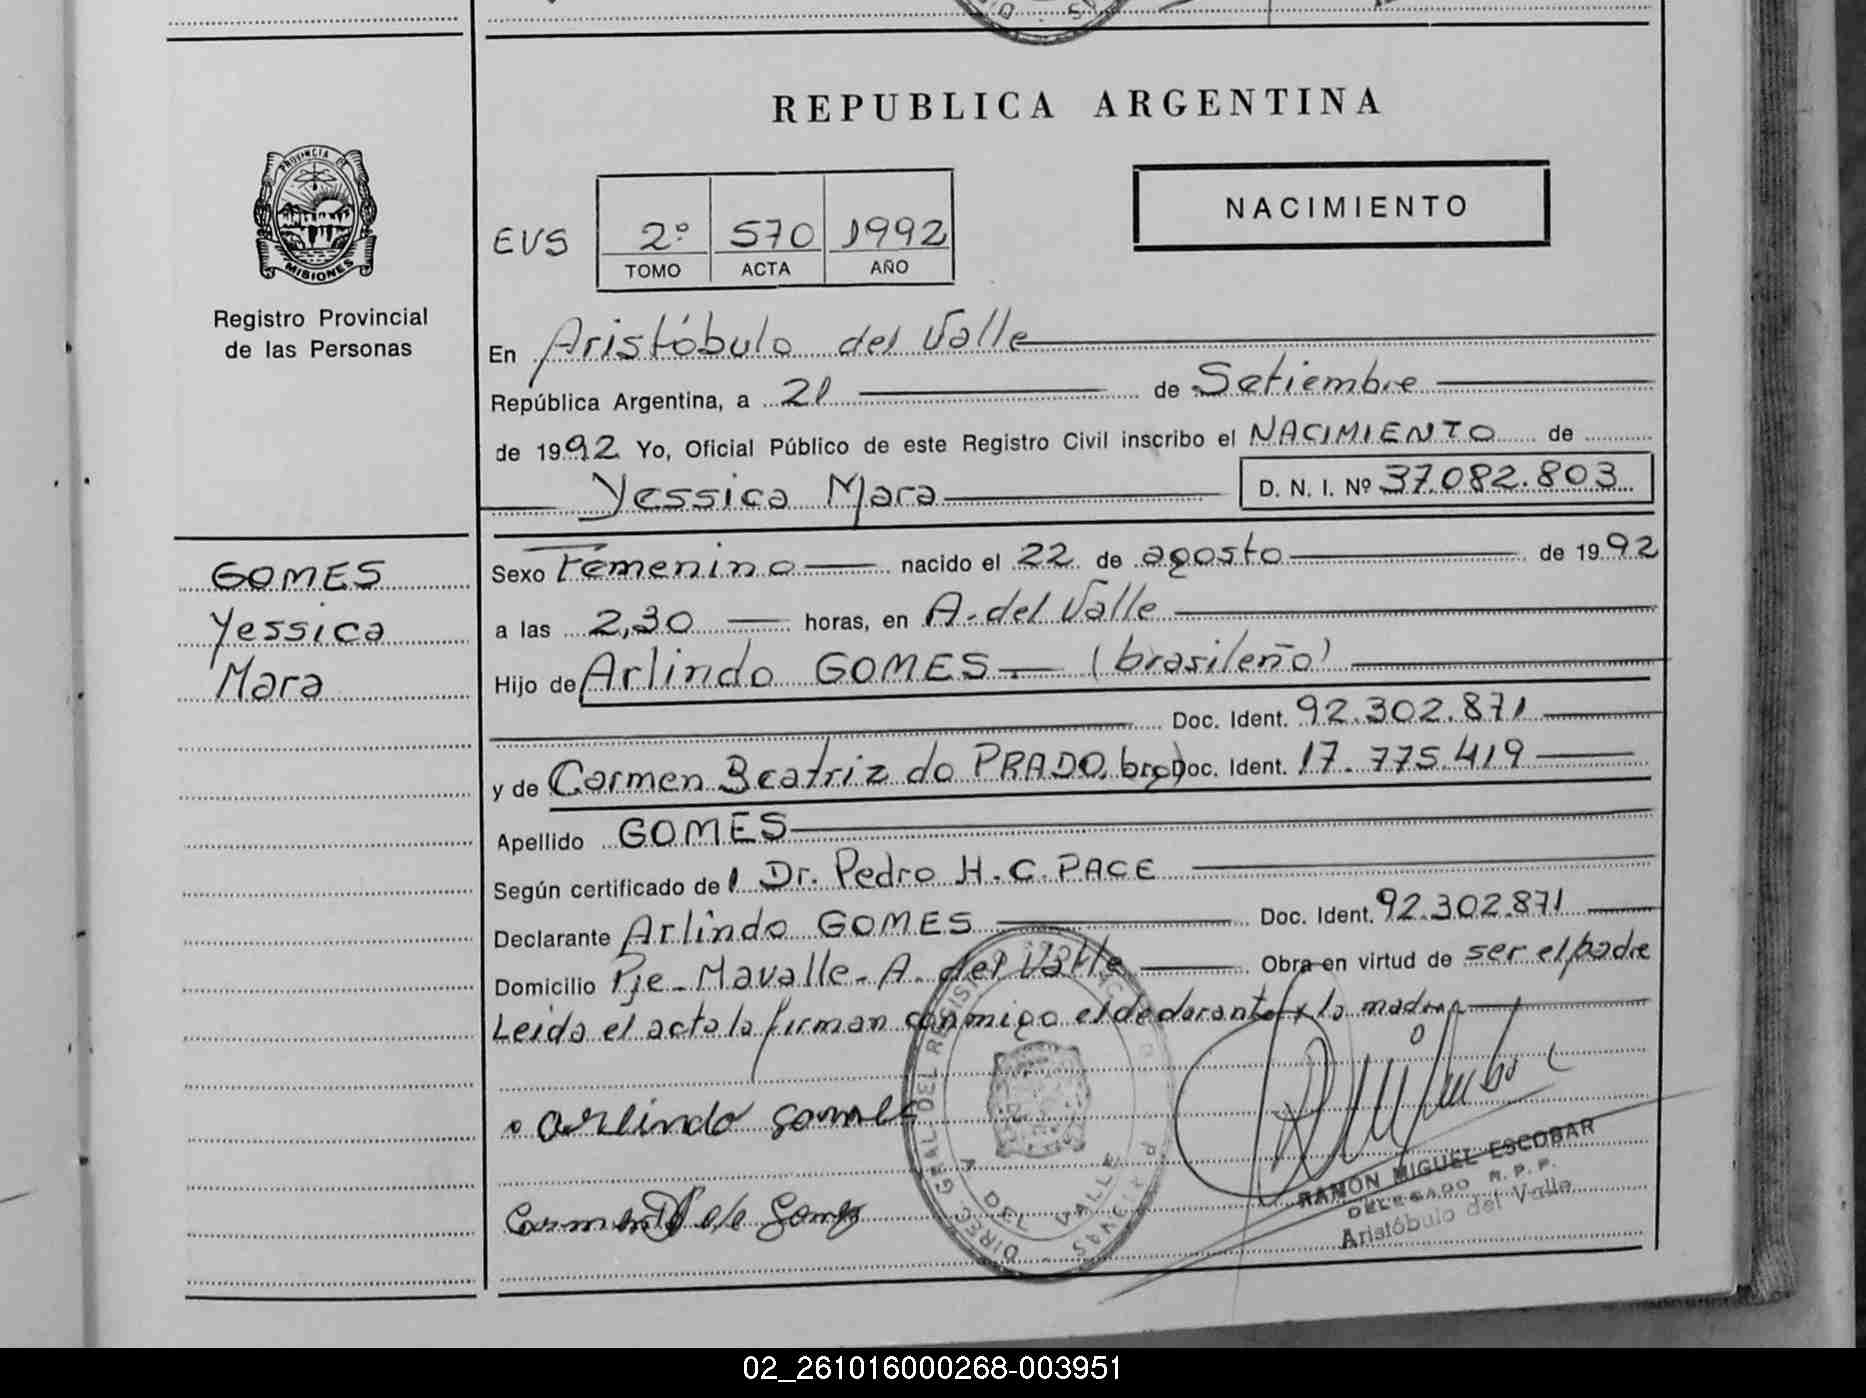 REPUBLICA ARGENTINA
PROVINCIA DE
MISIONES
Registro Provincial
de las Personas
EVS
2º 570 1992
TOMO ACTA AÑO
NACIMIENTO
En Aristóbulo del Valle
República Argentina, a 21 de Setiembre
de 1992 Yo, Oficial Público de este Registro Civil inscribo el NACIMIENTO de
Yessica Mara D. N. I. Nº 37.082.803
GOMES
Yessica
Mara
Sexo Femenino nacido el 22 de agosto de 1992
a las 2,30 horas, en A. del Valle
Hijo de Arlindo GOMES (brasileño)
Doc. Ident. 92.302.871
y de Carmen Beatriz do PRADO Doc. Ident. 17.775.419
Apellido GOMES
Según certificado del Dr. Pedro H. C. PACE
Declarante Arlindo GOMES Doc. Ident. 92.302.871
Domicilio Pje. Mavalle - A. del Valle Obra en virtud de ser el padre
Leida el acta la firman conmigo el declarante y la madre
arlindo gomes
RAMÓN MIGUEL ESCOBAR
DELEGADO R. P. P.
Aristóbulo del Valle
A. DEL VALLE
02_261016000268-003951